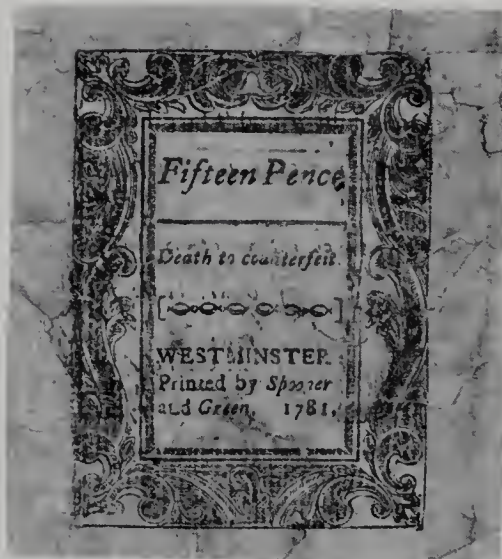 Fifteen Pence
Death to counterfeit.
WESTMINSTER
Printed by Spooner
and Green, 1781.